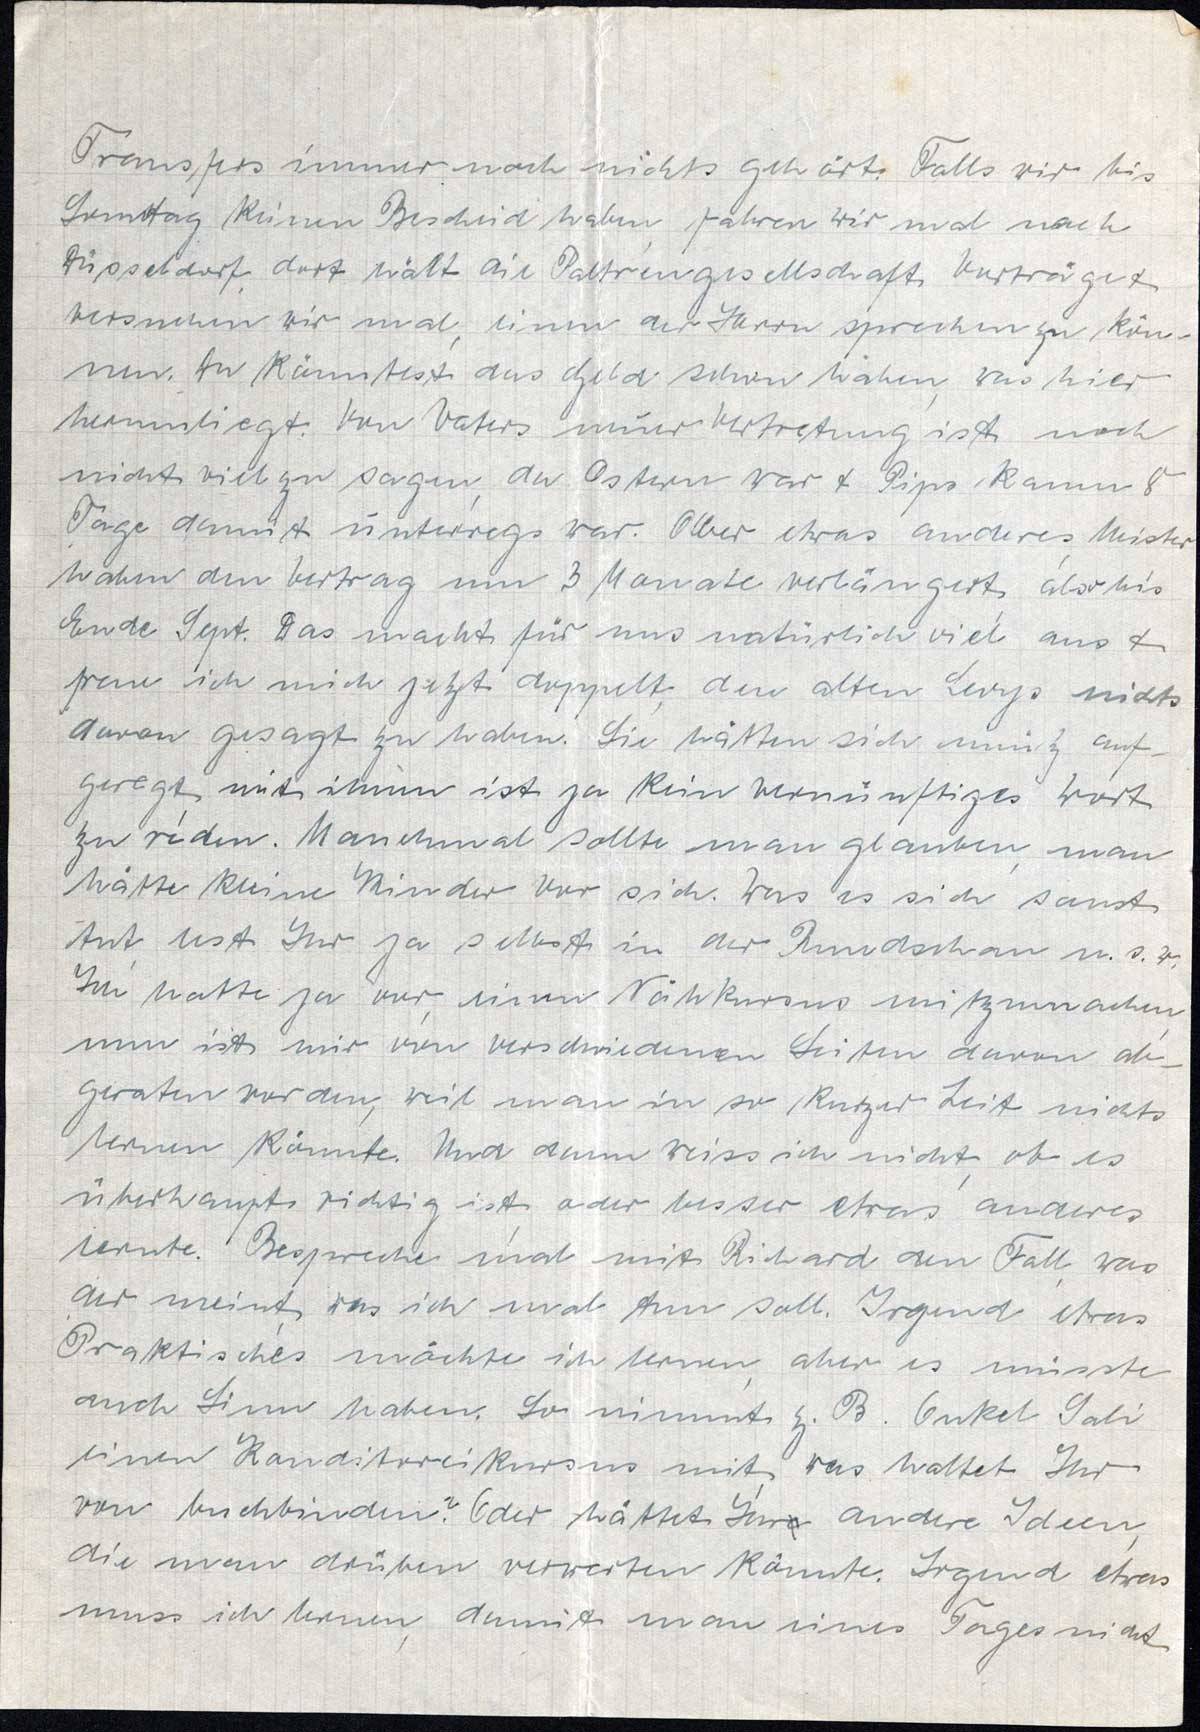 Transfers immer noch nichts gehört. Falls wir bis
Sonntag keinen Bescheid haben, fahren wir mal nach
Düsseldorf, dort hält die Paltreugesellschaft Vorträge &
versuchen wir mal, einen der Herrn sprechen zu kön-
nen. Du könntest das Geld schon haben, was hier
herumliegt. Von Vaters neuer Vertretung ist noch
nicht viel zu sagen, da Ostern war & Pips kaum 8
Tage damit unterwegs war. Aber etwas anderes, Meister
haben den Vertrag um 3 Monate verlängert, also bis
Ende Sept. Das macht für uns natürlich viel aus &
freue ich mich jetzt doppelt, den alten Levys nichts
davon gesagt zu haben. Sie hätten sich unnütz auf-
geregt, mit ihnen ist ja kein vernünftiges Wort
zu reden. Manchmal sollte man glauben, man
hätte kleine Kinder vor sich. Was es sich sonst
tut, lest Ihr ja selbst in der Rundschau u. s. w.
Ich hatte ja vor, einen Nähkursus mitzumachen,
nun ist mir von verschiedenen Seiten davon ab-
geraten worden, weil man in so kurzer Zeit nichts
lernen könnte. Und dann weiss ich nicht, ob es
überhaupt richtig ist, oder besser etwas anderes
lernte. Bespreche mal mit Richard den Fall, was
der meint, was ich mal tun soll. Irgend etwas
Praktisches möchte ich lernen, aber es müsste
auch Sinn haben. So nimmt z. B. Onkel Sali
einen Konditoreikursus mit, was haltet Ihr
von buchbinden? Oder hättet Ihr andere Ideen,
die man drüben verwerten könnte. Irgend etwas
muss ich lernen, damit man eines Tages nicht